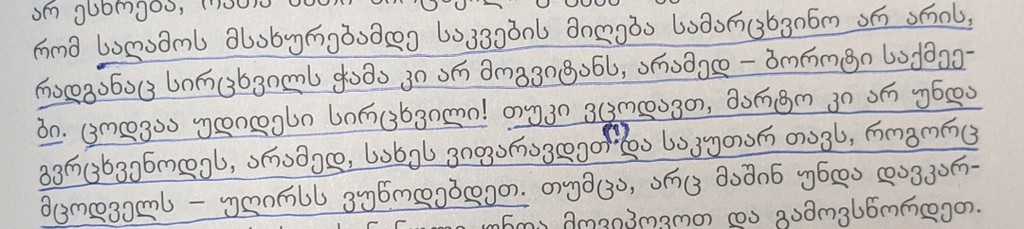 არ ესმოდება,
რომ საღამოს მსახურებამდე საკვების მიღება სამარცხვინო არ არის,
რადგანაც სირცხვილს ჭამა კი არ მოგვიტანს, არამედ – ბოროტი საქმეე-
ბი. ცოდვაა უდიდესი სირცხვილი! თუკი ვცოდავთ, მარტო კი არ უნდა
გვრცხვენოდეს, არამედ, სახეს ვიფარავდეთ (1) და საკუთარ თავს, როგორც
მცოდველს – უღირსს ვუწოდებდეთ. თუმცა, არც მაშინ უნდა დავკარ-
უნდა მოვიპოვოთ და გამოვსწორდეთ.